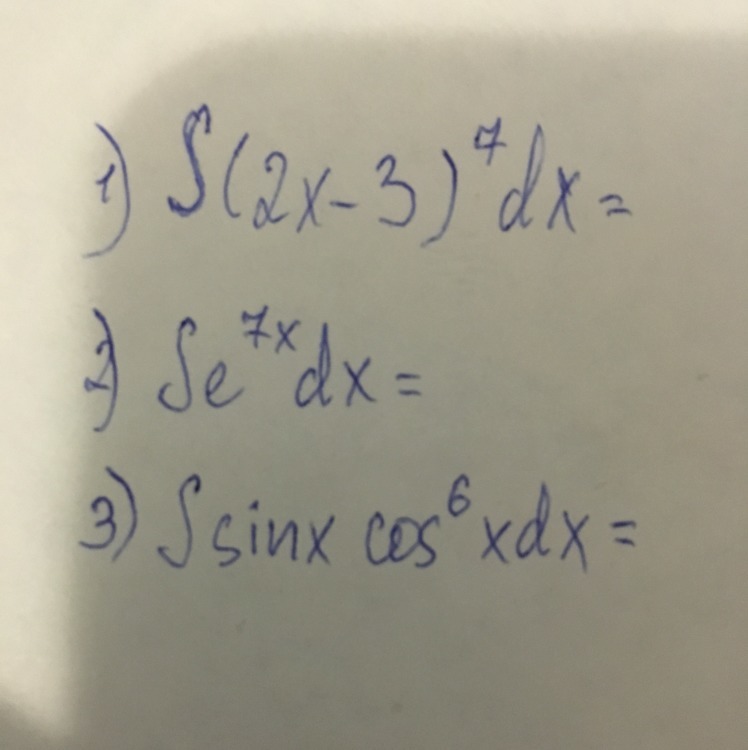 1) ∫(2x-3)⁷dx=
2) ∫e⁷ˣdx=
3) ∫sinx cos⁶xdx=